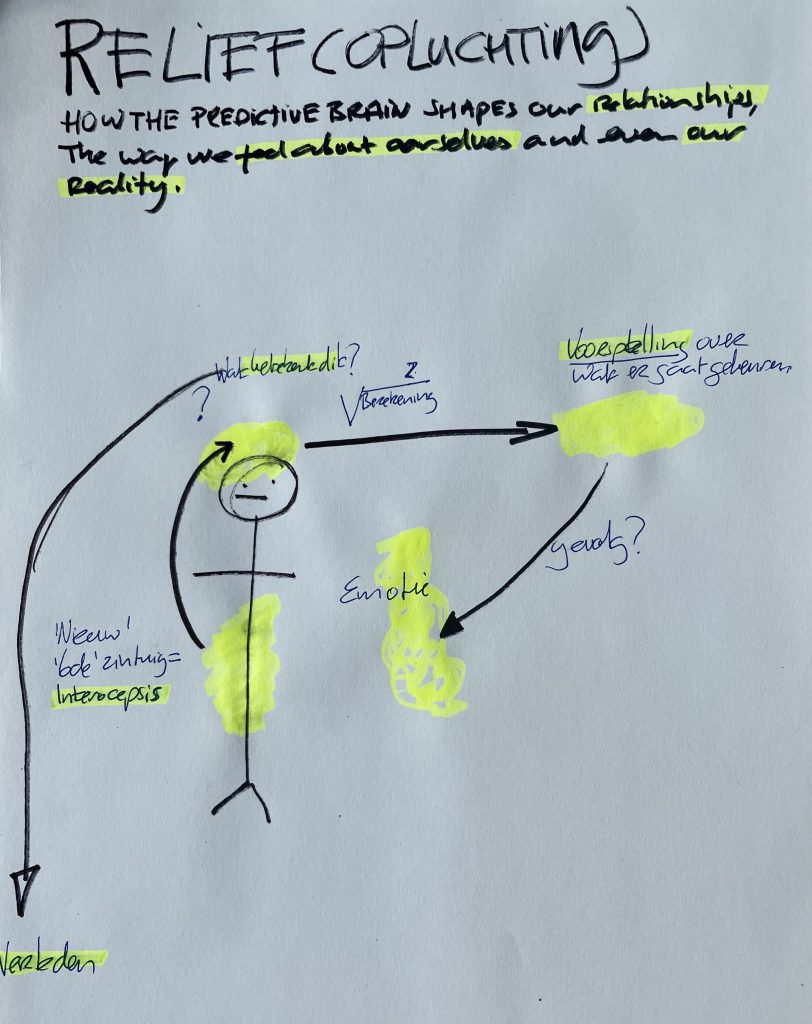 RELIEF (OPLUCHTING)
HOW THE PREDICTIVE BRAIN SHAPES our Relationships,
The way we feel about ourselves and even our
Reality.
Wat betekent dit?
?
2
√Berekening
Voorspelling over
wat er gaat gebeuren
gevolg?
Emotie
'Nieuw'
'6de' zintuig=
Interocepsis
Verleden